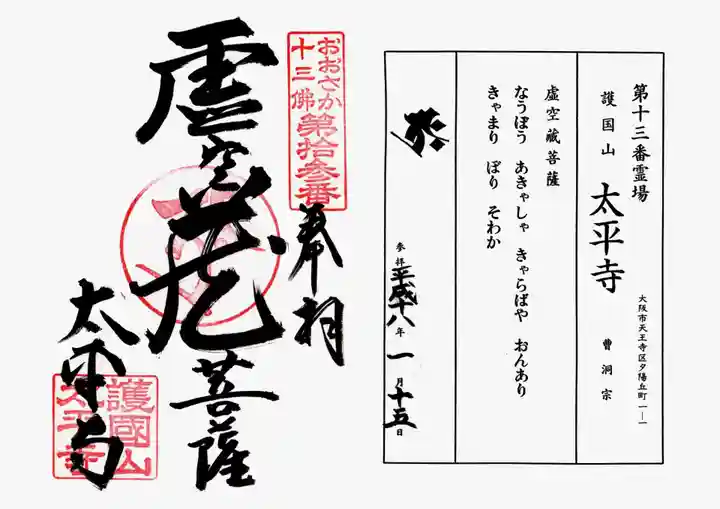 第十三番霊場
護国山 太平寺
大阪市天王寺区夕陽丘町一―一
曹洞宗
虚空蔵菩薩
なうぼう あきゃしゃ きゃらばや おんあり
きゃまり ぼり そわか
参拝 平成十八年一月十五日
おおさか
十三佛 第拾参番
奉拝
虚空蔵菩薩
太平寺
護國山
太平寺